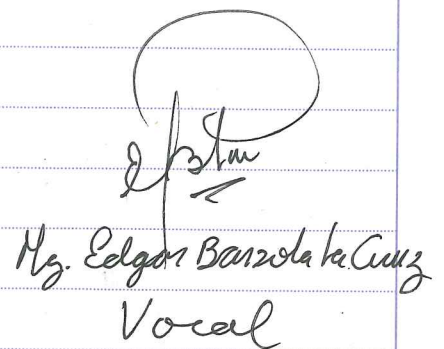 Mg. Edgar Barzola La Cruz
Vocal